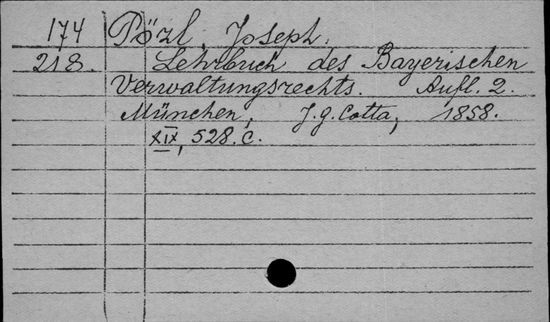 174 Pözl Joseph.
218. Lehrbuch des Bayerischen
Verwaltungsrechts. Aufl. 2.
München, J. g. Cotta, 1858.
XIX, 528. c.